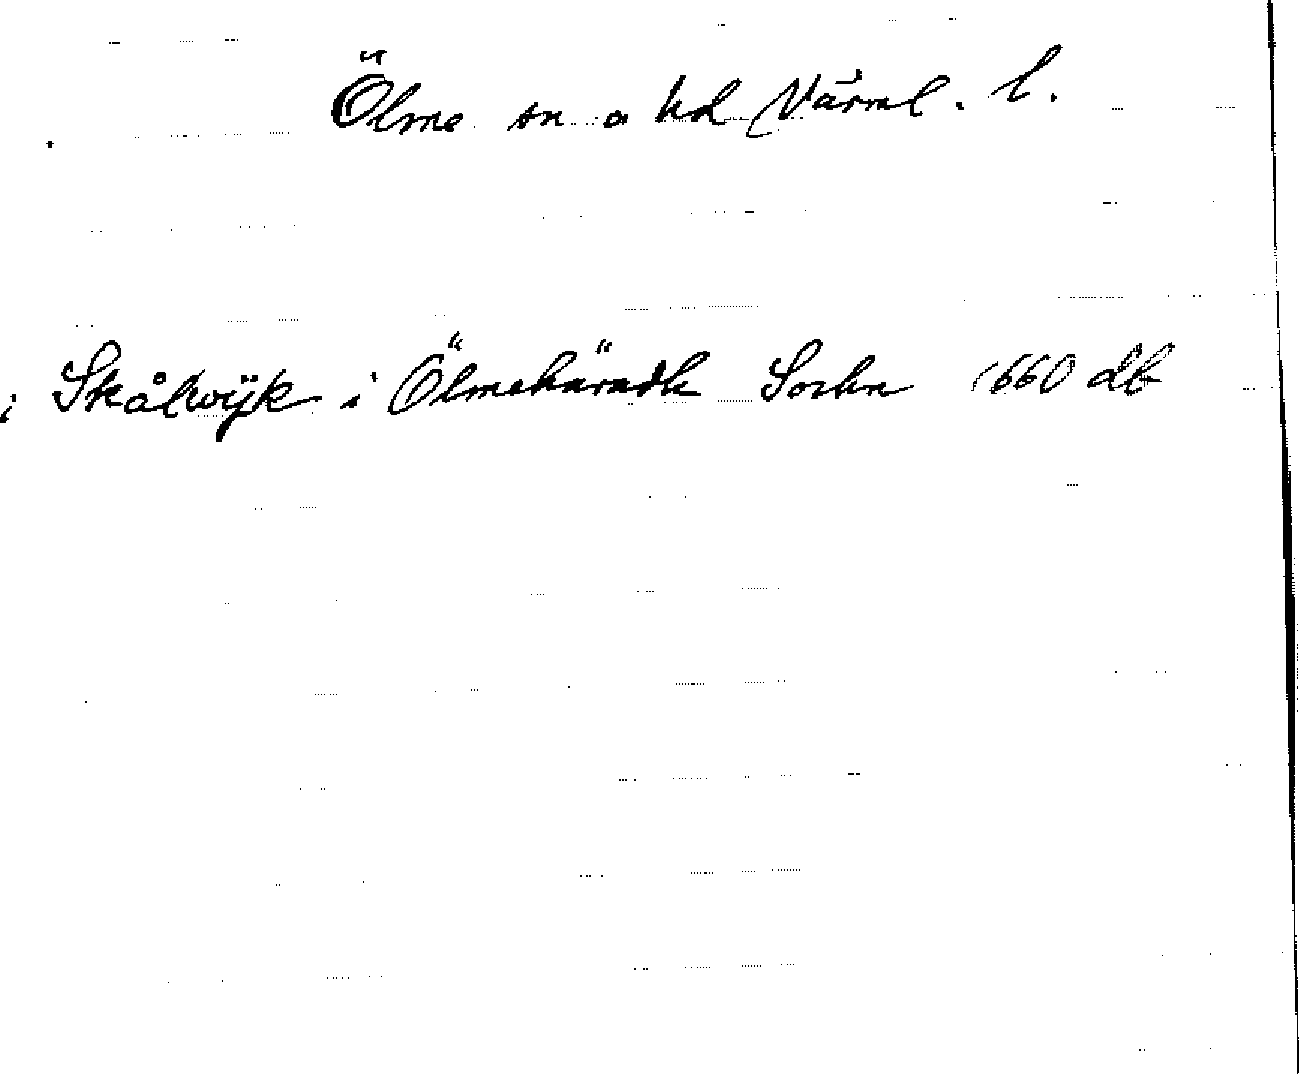 Ölme sn o hd Värml. l.
i Skålwijk i Ölmehäradh Sochn 1660 db